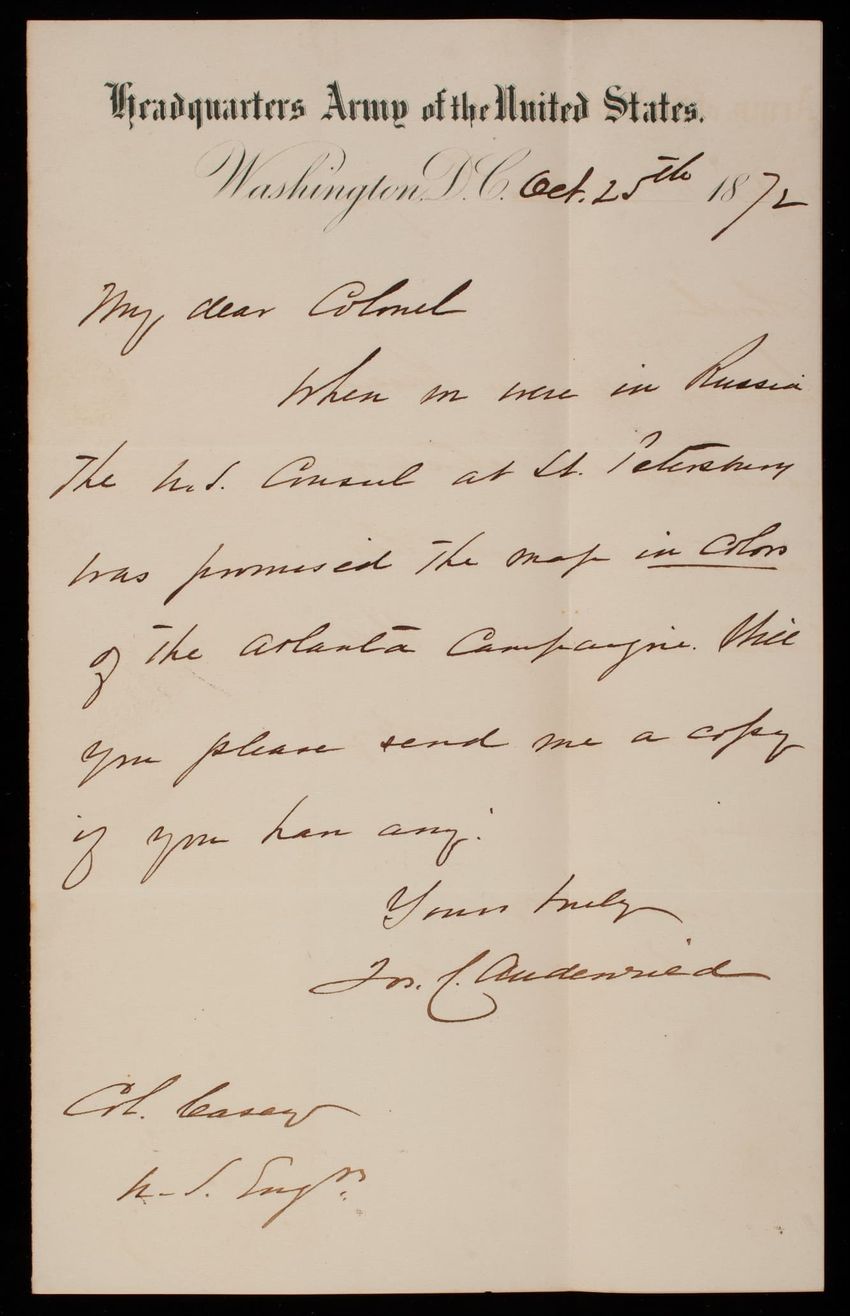 Headquarters Army of the United States.
Washington, D.C. Oct. 25th 1872
My dear Colonel
When we were in Russia
the U.S. Consul at St. Petersburg
was promised the map in colors
of the Atlanta Campaigne. Will
you please send me a copy
if you have any.
Yours truly
Jos. C. Audenried
Col. Casey
U.S. Engrs.